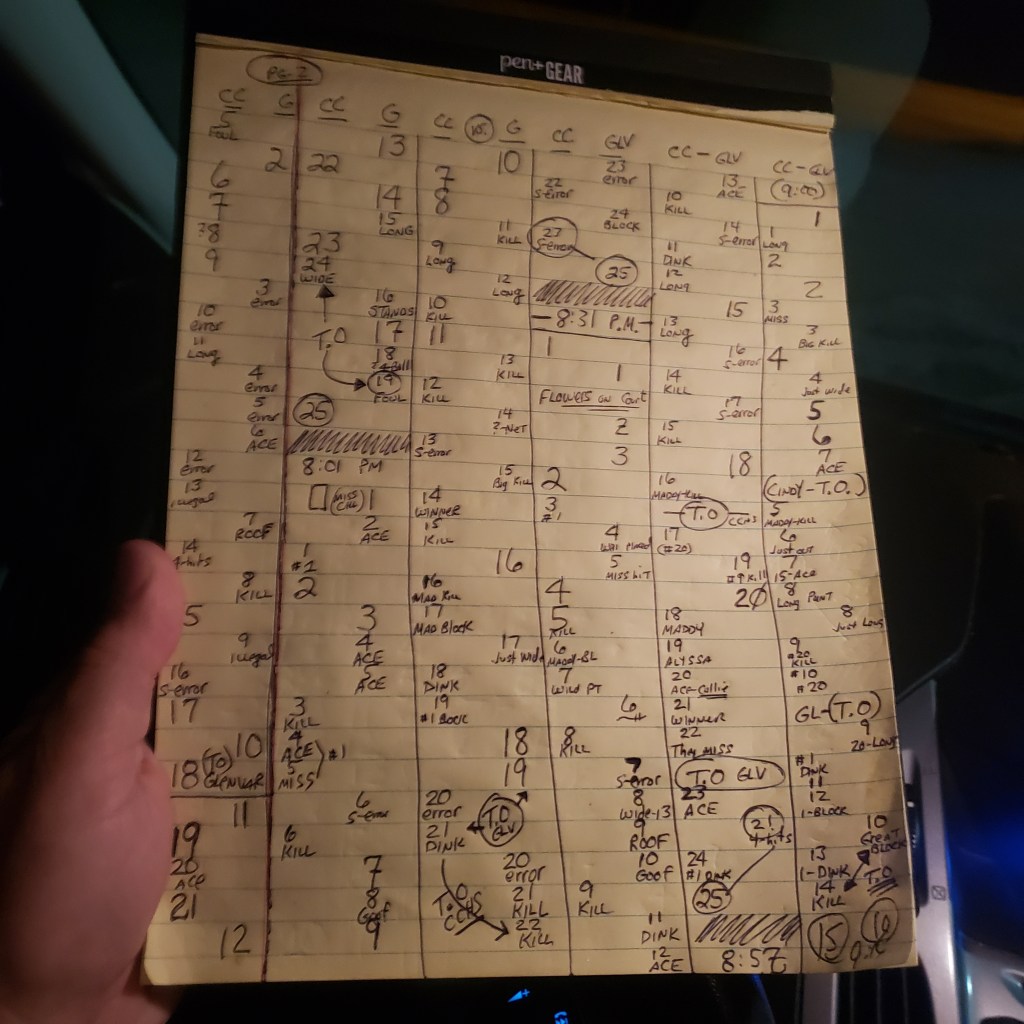 pen+GEAR
PG. 2
CC G
5
FOUL
2
6
7
8
9
3
error
10
error
11
LONG
4
error
5
error
6
ACE
12
error
13
illegal
7
ROOF
14
4-hits
8
KILL
5
9
illegal
16
S-error
17
10
18 (TO) GLENVAR
11
19
20
ACE
21
12
CC G
13
22
14
15
LONG
23
24
WIDE
16
STANDS
T.O
17
18
19
FOUL
25
8:01 PM
(MISS CALL) 1
2
ACE
1
#1
2
3
4
ACE
5
ACE
3
KILL
4
ACE
#1
5
MISS
6
S-error
6
KILL
7
8
Goof
9
CC G
10
7
8
11
KILL
9
LONG
12
LONG
10
KILL
11
13
KILL
12
KILL
14
?-NET
13
S-error
15
Big Kill
14
WINNER
15
KILL
16
16
MAD KILL
17
MAD BLOCK
17
Just Wide
18
DINK
19
#1 BLOCK
18
19
20
error
T.O GLV
21
DINK
20
error
T.O CCHS
21
KILL
22
KILL
CC GLV
23
error
22
S-error
24
BLOCK
23
S-error
25
- 8:31 P.M. -
1
1
FLOWERS on Court
2
3
2
3
#1
4
WELL PLACED
5
MISS hiT
4
5
KILL
6
MADDY-BL
7
WILD PT
6
8
KILL
7
S-error
8
WIDE-13
9
ROOF
10
Goof
9
KILL
11
DINK
12
ACE
CC - GLV
13
ACE
10
KILL
14
S-error
11
DINK
12
LONG
15
13
LONG
16
S-error
14
KILL
17
S-error
15
KILL
18
16
MADDY-KILL
T.O CCHS
17
(#20)
19
#9 KILL
20
18
MADDY
19
ALYSSA
20
ACE-Callie
21
WINNER
22
THEY MISS
T.O GLV
23
ACE
21
4-hits
24
#1 DINK
25
8:57
CC - GLV
(9:00)
1
1
LONG
2
2
3
MISS
3
BIG KILL
4
4
Just wide
5
6
7
ACE
(CINDY - T.O.)
5
MADDY-KILL
6
Just out
7
15-ACE
8
LONG POINT
8
Just Long
9
#20
KILL
#10
#20
GL-(T.O)
9
20-LONG
#1
DINK
11
12
1-BLOCK
10
Great BLOCK
13
1-DINK
T.O
14
KILL
15
10